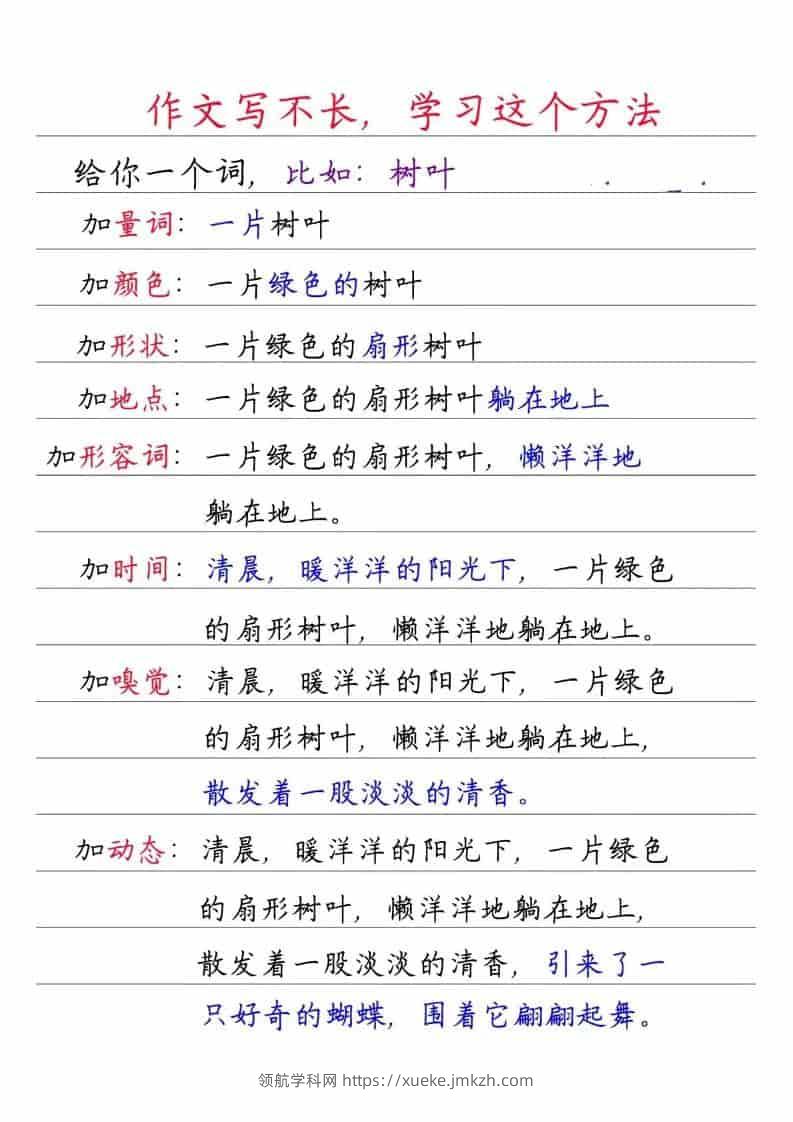 作文写不长，学习这个方法
给你一个词，比如：树叶
加量词：一片树叶
加颜色：一片绿色的树叶
加形状：一片绿色的扇形树叶
加地点：一片绿色的扇形树叶躺在地上
加形容词：一片绿色的扇形树叶，懒洋洋地
躺在地上。
加时间：清晨，暖洋洋的阳光下，一片绿色
的扇形树叶，懒洋洋地躺在地上。
加嗅觉：清晨，暖洋洋的阳光下，一片绿色
的扇形树叶，懒洋洋地躺在地上，
散发着一股淡淡的清香。
加动态：清晨，暖洋洋的阳光下，一片绿色
的扇形树叶，懒洋洋地躺在地上，
散发着一股淡淡的清香，引来了一
只好奇的蝴蝶，围着它翩翩起舞。
领航学科网 https://xueke.jmkzh.com